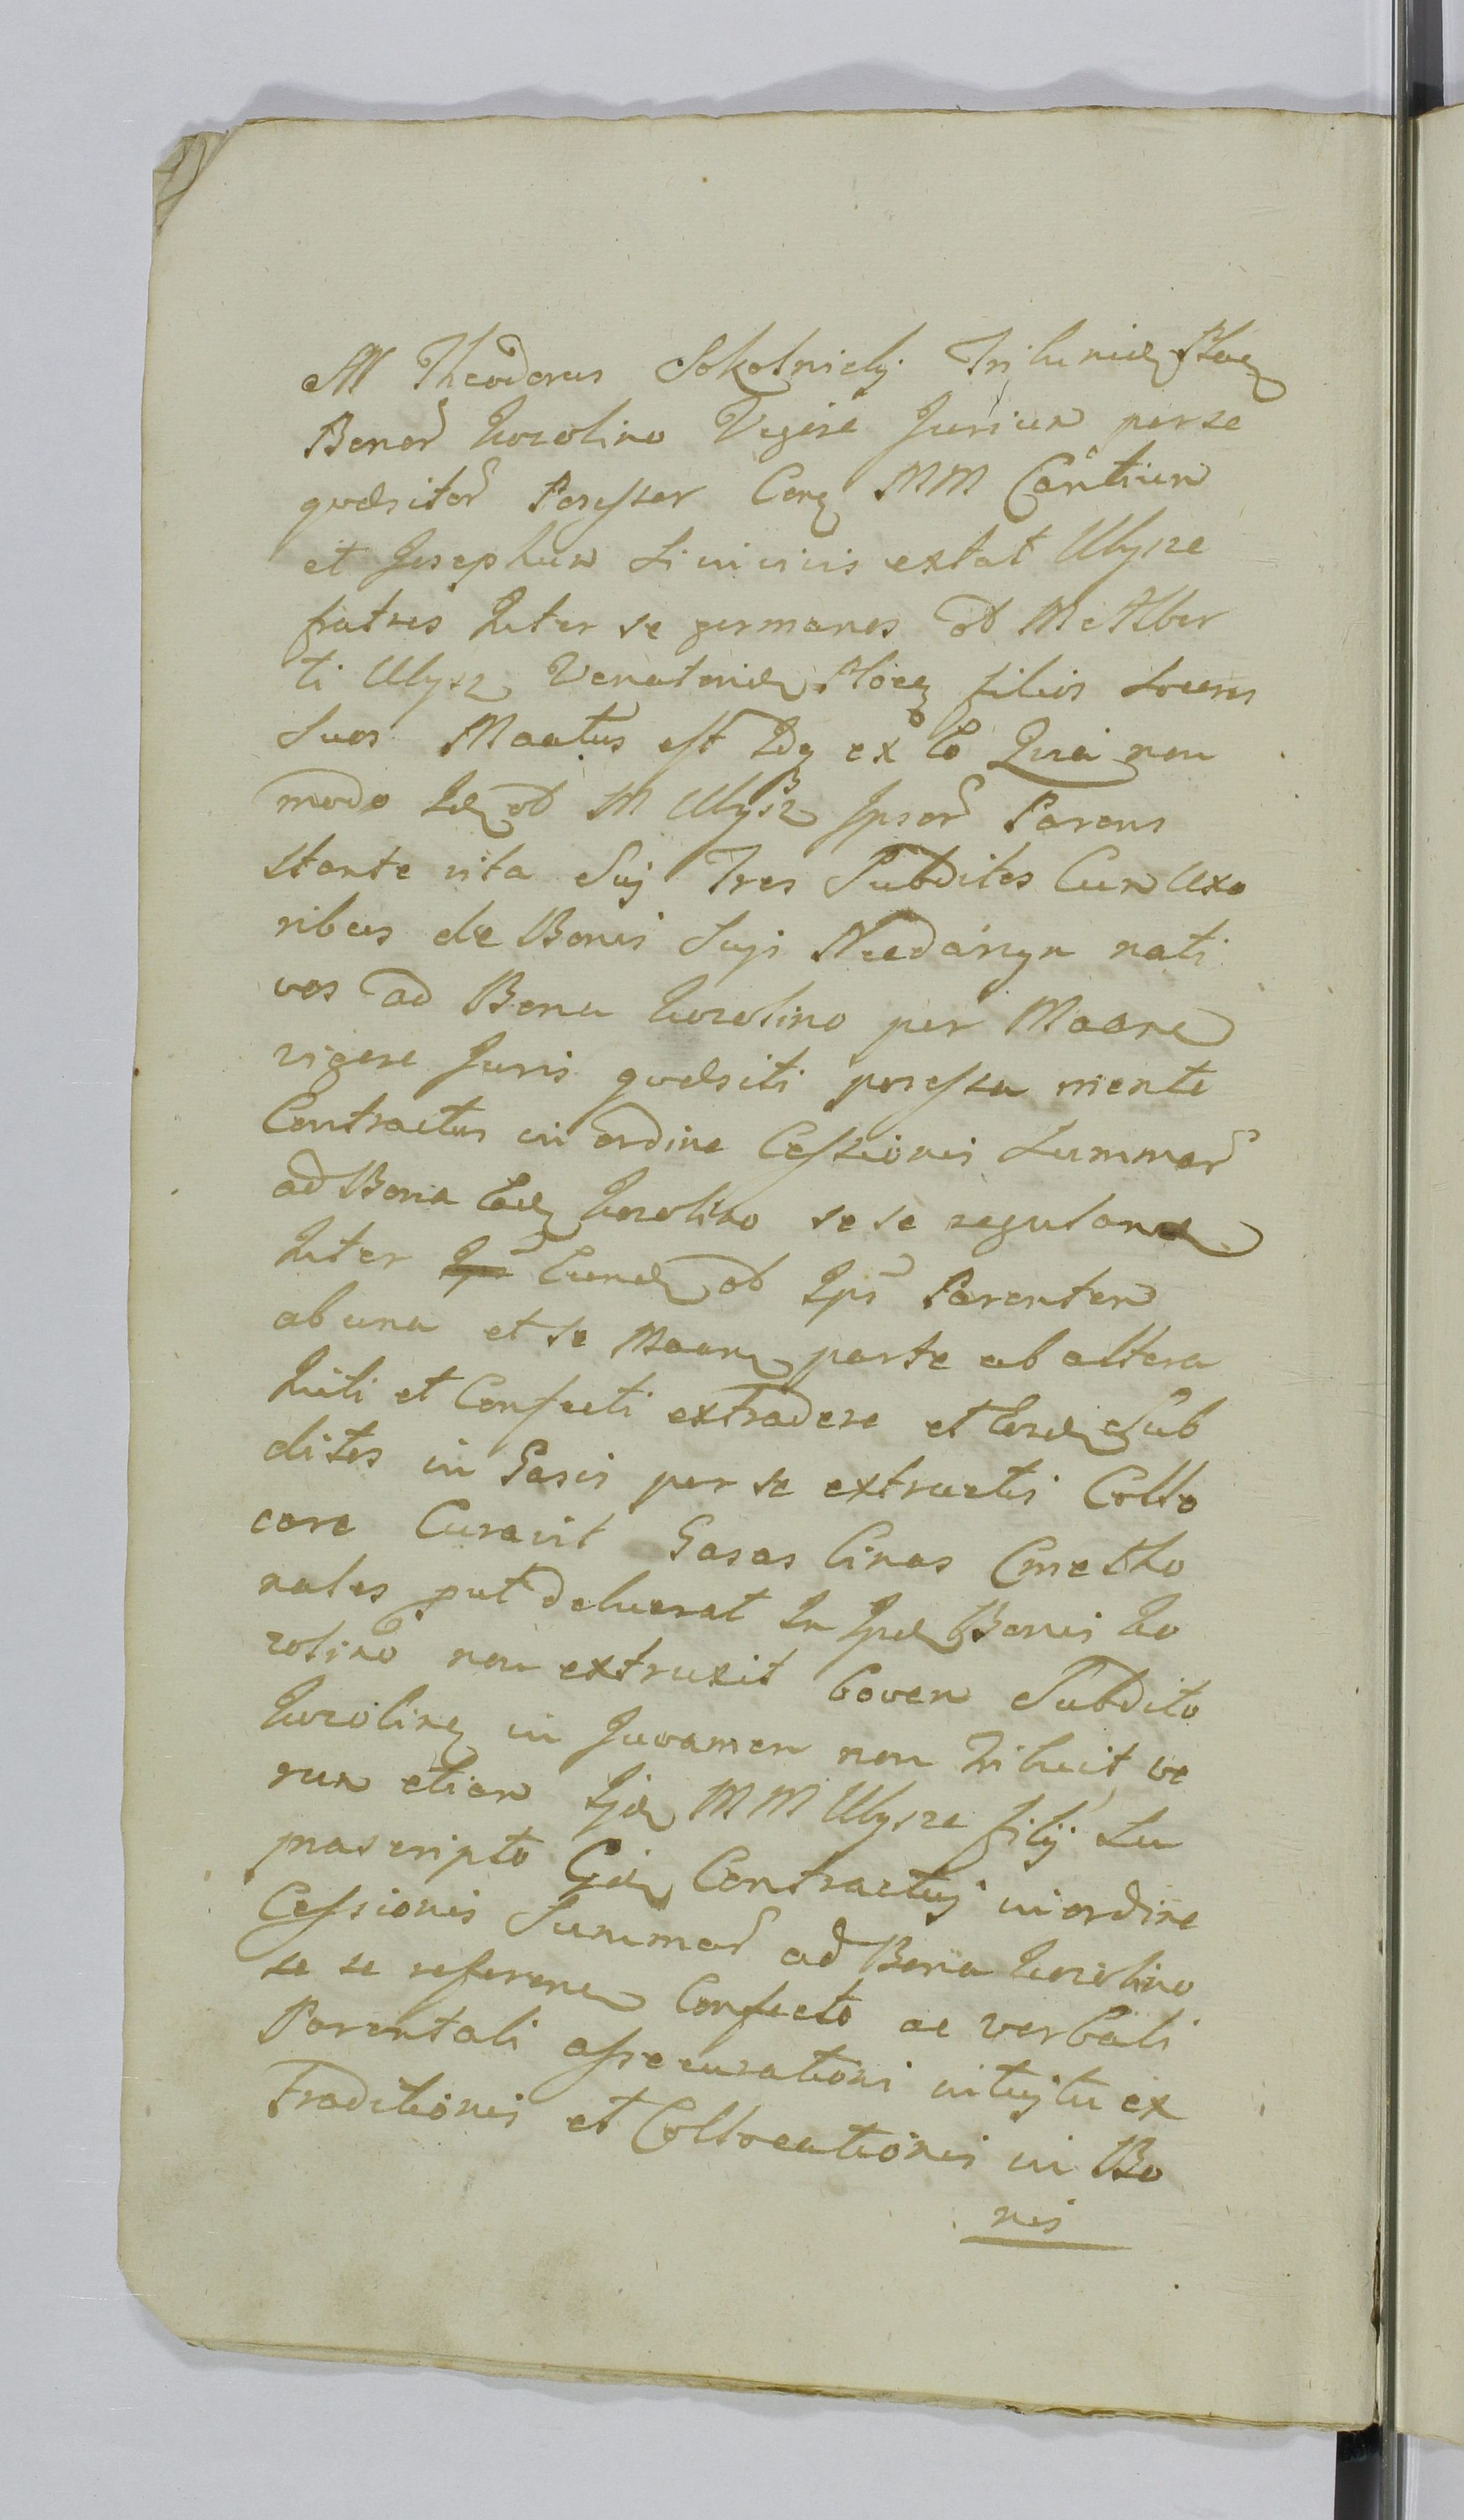 M Theodorus Sokolnicky Tribunid Ploc
Bonor Korolino Vigore Jurium per se
quaesitor Possessor Conq MM Cantium
et Josephum Livivis extat Ulysze
fratres Inter se germanos ob M Alber
ti Ulysz Venatorid Ploc filios Soceros
Suos Maatus est Idq ex Eo Quia non
modo Id ob M Ulysz Ipsor Parens
stante vita Suj Tres Subditos Cum Uxo
ribus de Bonis Sujs Niedarzyn nati
vos ad Bona Korolino per Maane
vigore Juris quaesiti possessa mente
Contractus in ordine Cessionis Summar
ad Bona Ead Korolino se se regulan
Inter Eund ob Ips Parentem
ab una et se Maane parte ab altera
Initi et Confecti extradere et Eosd Sub
ditos in Casis per se extructis Collo
care Curavit Casas binas Cmetho
nales put debuerat In Ipsd Bonis Ko
rolino non extruxit bovem Subdito
Korolino in Juvamen non tribuit ve
rum etiam Ijd MM Ulysze filij Su
prascripto Ejd Contractuj in ordine
Cessionis Summar ad Bona Korolino
se se referen Confecto ac verbali
Parentali assecurationi intuitu ex
traditionis et Collocationis in Bo
nis